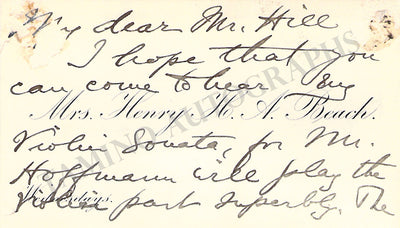 My dear Mr. Hill
I hope that you
can come to hear my
Mrs. Henry H. A. Beach.
Violin Sonata, for Mr.
Hoffmann will play the
violin part superbly. The
TAMINO AUTOGRAPHS